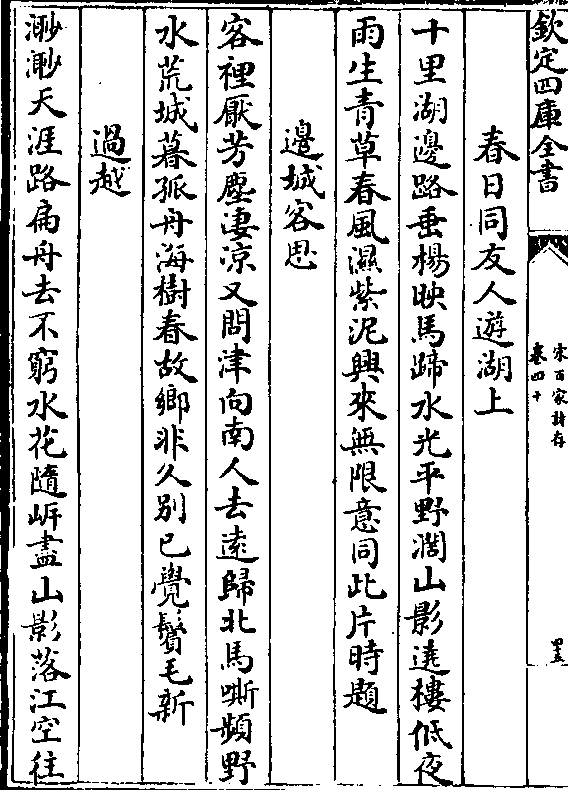 欽定四庫全書
宋百家詩存
卷四十
四五
春日同友人遊湖上
十里湖邊路垂楊映馬蹄水光平野濶山影逺樓低夜
雨生青草春風濕紫泥興來無限意同此片時題
邊城客思
客裡厭芳塵凄凉又問津向南人去逺歸北馬嘶頻野
水荒城暮孤舟海樹春故鄉非久别已覺鬢毛新
過越
渺渺天涯路扁舟去不窮水花隨岍盡山影落江空往